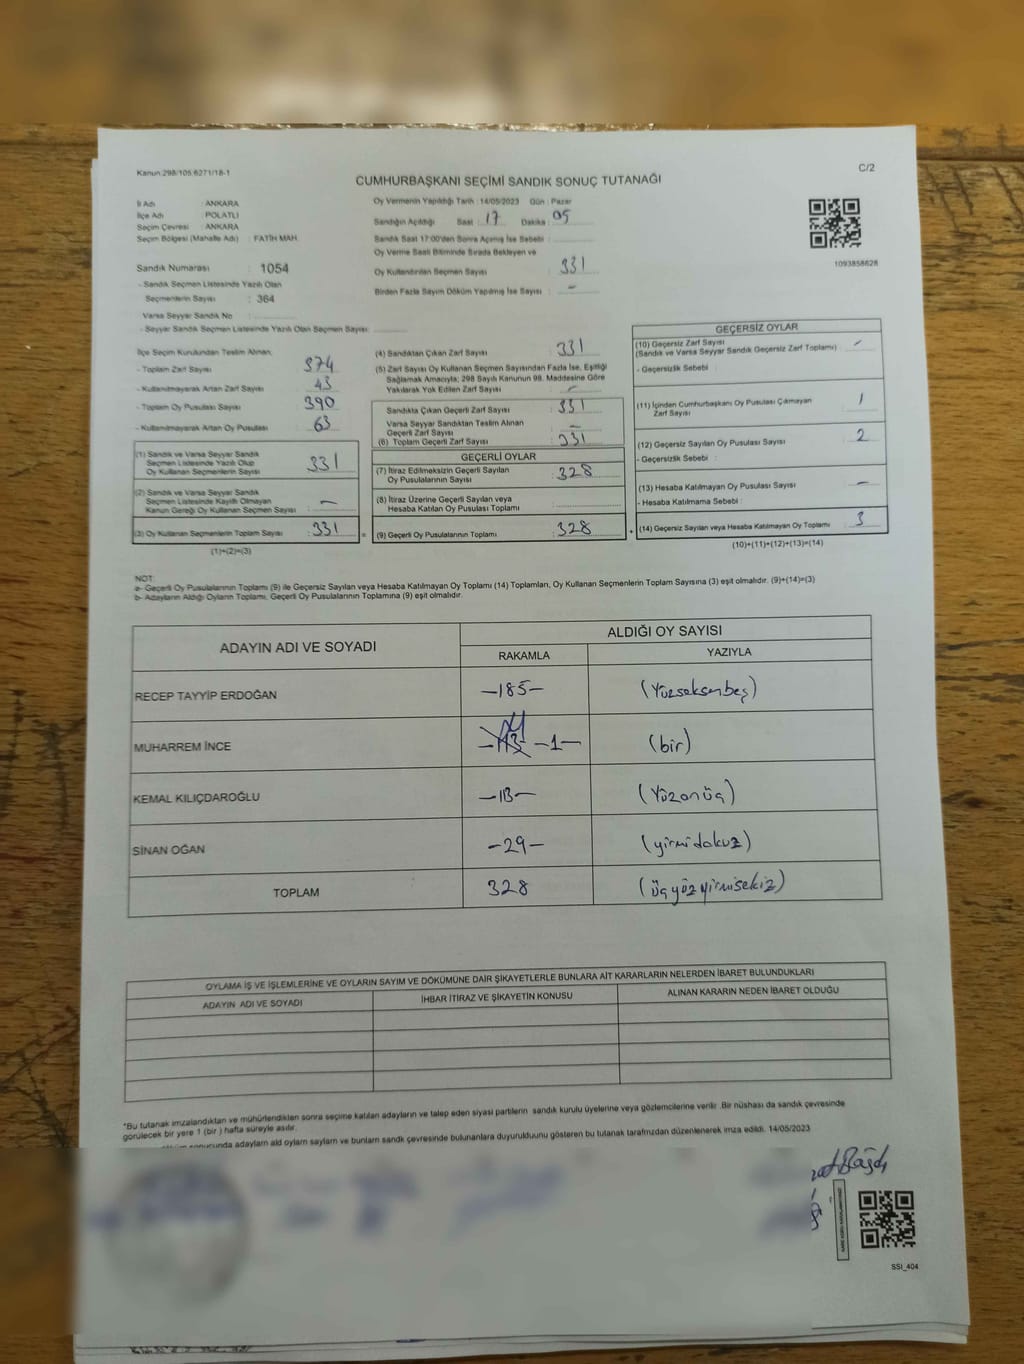 Kanun:298/105;6271/18-1
C/2
CUMHURBAŞKANI SEÇİMİ SANDIK SONUÇ TUTANAĞI
İl Adı : ANKARA
İlçe Adı : POLATLI
Seçim Çevresi : ANKARA
Seçim Bölgesi (Mahalle Adı) : FATİH MAH.
Sandık Numarası : 1054
- Sandık Seçmen Listesinde Yazılı Olan
Seçmenlerin Sayısı : 364
Varsa Seyyar Sandık No :
- Seyyar Sandık Seçmen Listesinde Yazılı Olan Seçmen Sayısı :
Oy Vermenin Yapıldığı Tarih : 14/05/2023 Gün : Pazar
Sandığın Açıldığı Saat : 17 Dakika : 05
Sandık Saat 17:00'den Sonra Açılmış İse Sebebi :
Oy Verme Saati Bitiminde Sırada Bekleyen ve
Oy Kullandırılan Seçmen Sayısı : 331
Birden Fazla Sayım Döküm Yapılmış İse Sayısı : -
1093858628
İlçe Seçim Kurulundan Teslim Alınan;
- Toplam Zarf Sayısı : 374
- Kullanılmayarak Artan Zarf Sayısı : 43
- Toplam Oy Pusulası Sayısı : 390
- Kullanılmayarak Artan Oy Pusulası : 63
(1) Sandık ve Varsa Seyyar Sandık
Seçmen Listesinde Yazılı Olup
Oy Kullanan Seçmenlerin Sayısı : 331
(2) Sandık ve Varsa Seyyar Sandık
Seçmen Listesinde Kayıtlı Olmayan
Kanun Gereği Oy Kullanan Seçmen Sayısı : -
(3) Oy Kullanan Seçmenlerin Toplam Sayısı : 331
(1)+(2)=(3)
(4) Sandıktan Çıkan Zarf Sayısı : 331
(5) Zarf Sayısı Oy Kullanan Seçmen Sayısından Fazla İse, Eşitliği
Sağlamak Amacıyla; 298 Sayılı Kanunun 98. Maddesine Göre
Yakılarak Yok Edilen Zarf Sayısı : -
Sandıkta Çıkan Geçerli Zarf Sayısı : 331
Varsa Seyyar Sandıktan Teslim Alınan
Geçerli Zarf Sayısı : -
(6) Toplam Geçerli Zarf Sayısı : 331
GEÇERLİ OYLAR
(7) İtiraz Edilmeksizin Geçerli Sayılan
Oy Pusulalarının Sayısı : 328
(8) İtiraz Üzerine Geçerli Sayılan veya
Hesaba Katılan Oy Pusulası Toplamı :
= (9) Geçerli Oy Pusulalarının Toplamı : 328
GEÇERSİZ OYLAR
(10) Geçersiz Zarf Sayısı : -
(Sandık ve Varsa Seyyar Sandık Geçersiz Zarf Toplamı)
- Geçersizlik Sebebi :
(11) İçinden Cumhurbaşkanı Oy Pusulası Çıkmayan : 1
Zarf Sayısı
(12) Geçersiz Sayılan Oy Pusulası Sayısı : 2
- Geçersizlik Sebebi :
(13) Hesaba Katılmayan Oy Pusulası Sayısı : -
- Hesaba Katılmama Sebebi :
+ (14) Geçersiz Sayılan veya Hesaba Katılmayan Oy Toplamı : 3
(10)+(11)+(12)+(13)=(14)
NOT:
a- Geçerli Oy Pusulalarının Toplamı (9) ile Geçersiz Sayılan veya Hesaba Katılmayan Oy Toplamı (14) Toplamları, Oy Kullanan Seçmenlerin Toplam Sayısına (3) eşit olmalıdır. (9)+(14)=(3)
b- Adayların Aldığı Oyların Toplamı, Geçerli Oy Pusulalarının Toplamına (9) eşit olmalıdır.
ADAYIN ADI VE SOYADI
ALDIĞI OY SAYISI
RAKAMLA YAZIYLA
RECEP TAYYİP ERDOĞAN -185- (Yüzseksenbeş)
MUHARREM İNCE -1- (bir)
KEMAL KILIÇDAROĞLU -113- (Yüzonüç)
SİNAN OĞAN -29- (yirmidokuz)
TOPLAM 328 (üçyüzyirmisekiz)
OYLAMA İŞ VE İŞLEMLERİNE VE OYLARIN SAYIM VE DÖKÜMÜNE DAİR ŞİKAYETLERLE BUNLARA AİT KARARLARIN NELERDEN İBARET BULUNDUKLARI
ADAYIN ADI VE SOYADI İHBAR İTİRAZ VE ŞİKAYETİN KONUSU ALINAN KARARIN NEDEN İBARET OLDUĞU
*Bu tutanak imzalandıktan ve mühürlendikten sonra seçime katılan adayların ve talep eden siyasi partilerin sandık kurulu üyelerine veya gözlemcilerine verilir .Bir nüshası da sandık çevresinde
görülecek bir yere 1 (bir ) hafta süreyle asılır.
sonucunda adayların ald oyların sayların ve bunların sandk çevresinde bulunanlara duyurulduunu gösteren bu tutanak tarafmzdan düzenlenerek imza edildi. 14/05/2023
SSI_404